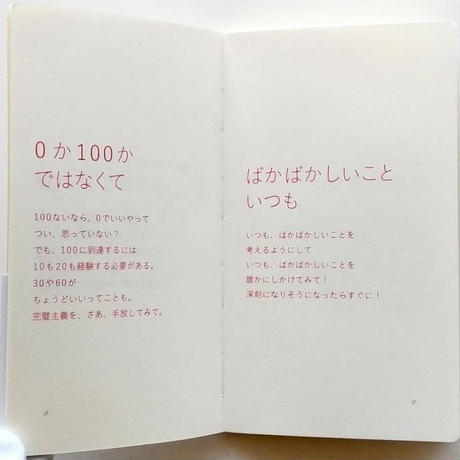 0か100か
ではなくて
100ないなら、0でいいやって
つい、思っていない？
でも、100に到達するには
10も20も経験する必要がある。
30や60が
ちょうどいいってことも。
完璧主義を、さあ、手放してみて。
8
ばかばかしいこと
いつも
いつも、ばかばかしいことを
考えるようにして
いつも、ばかばかしいことを
誰かにしかけてみて！
深刻になりそうになったらすぐに！
9